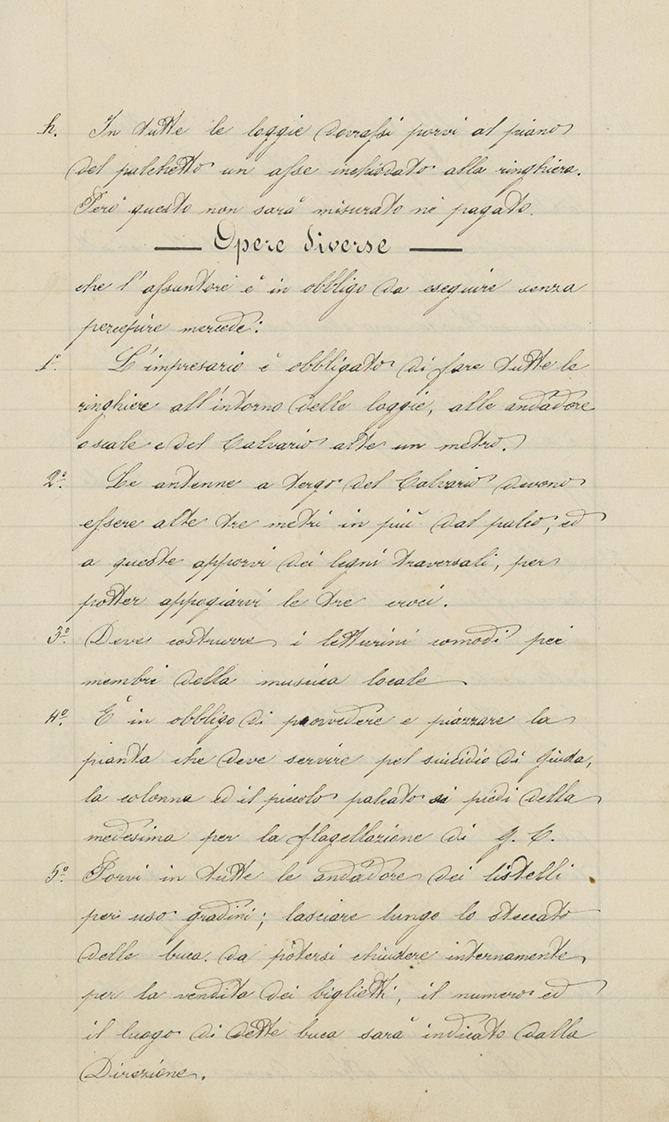 h. In tutte le loggie dovrassi porvi al piano
del palchetto un asse inchiodato alla ringhiera.
Però questo non sarà misurato nè pagato.
— Opere diverse —
che l'assuntore è in obbligo da eseguire senza
percepire mercede:
1º. L'impresario è obbligato di fare tutte le
ringhiere all'intorno delle loggie, alle andadore
o scale e del Calvario alte un metro.
2º. Le antenne a tergo del Calvario devono
essere alte tre metri in più dal palco, ed
a queste apporvi dei legni traversali, per
potter appogiarvi le tre croci.
3º. Deve costrurre i letturini comodi pei
membri della musica locale
4º. È in obbligo di provvedere e piazzare la
pianta che deve servire pel suicidio di Giuda,
la colonna ed il piccolo palcato ai piedi della
medesima per la flagellazione di G. C.
5º. Porvi in tutte le andadore dei listelli
per uso gradini; lasciare lungo lo steccato
delle buca da potersi chiudere internamente
per la vendita dei biglietti, il numero ed
il luogo di dette buca sarà indicato dalla
Direzione.